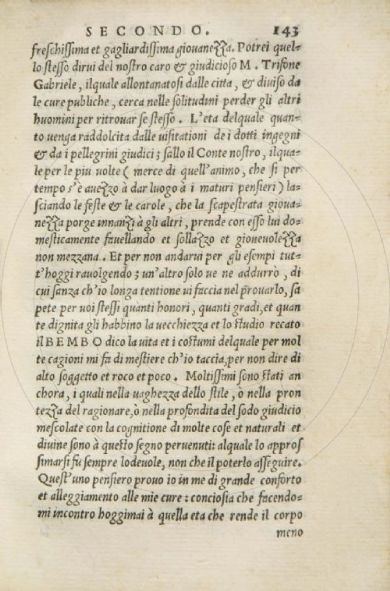 SECONDO. 143
freschissima et gagliardissima giouanezza. Potrei quel-
lo stesso dirui del nostro caro & giudicioso M. Trifone
Gabriele, ilquale allontanatosi dalle citta, & diuiso da
le cure publiche, cerca nelle solitudini perder gli altri
huomini per ritrouar se stesso. L'eta delquale quan-
to uenga raddolcita dalle uisitationi de i dotti ingegni
& da i pellegrini giudici; sallo il Conte nostro, ilqua-
le per le piu uolte (merce di quell'animo, che si per
tempo s'è auezzo à dar luogo à i maturi pensieri) la-
sciando le feste & le carole, che la scapestrata gioua-
nezza porge innanzi à gli altri, prende con esso lui do-
mesticamente fauellando et sollazzo et gioneuolezza
non mezzana. Et per non andarui per gli esempi tut-
t'hoggi rauolgendo; un'altro solo ue ne addurrò, di
cui sanza ch'io longa tentione ui faccia nel prouarlo, sa
pete per uoi stessi quanti honori, quanti gradi, et quan
te dignita gli habbino la uecchiezza et lo studio recato
il BEMBO dico la uita et i costumi delquale per mol
te cazioni mi fa di mestiere ch'io taccia, per non dire di
alto soggetto et roco et poco. Moltissimi sono stati an
chora, i quali nella uaghezza dello stile, ò nella pron
tezza del ragionare, ò nella profondita del sodo giudicio
mescolate con la cognitione di molte cose et naturali et
diuine sono à questo segno peruenuti: alquale lo appros
simarsi fu sempre lodeuole, non che il poterlo asseguire.
Quest'uno pensiero prouo io in me di grande conforto
et alleggiamento alle mie cure: conciosia che facendo-
mi incontro hoggimai à quella eta che rende il corpo
meno